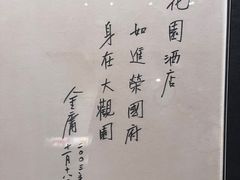 花園酒店
如進榮國府
身在大觀園
金庸
二〇〇三年
十一月十八